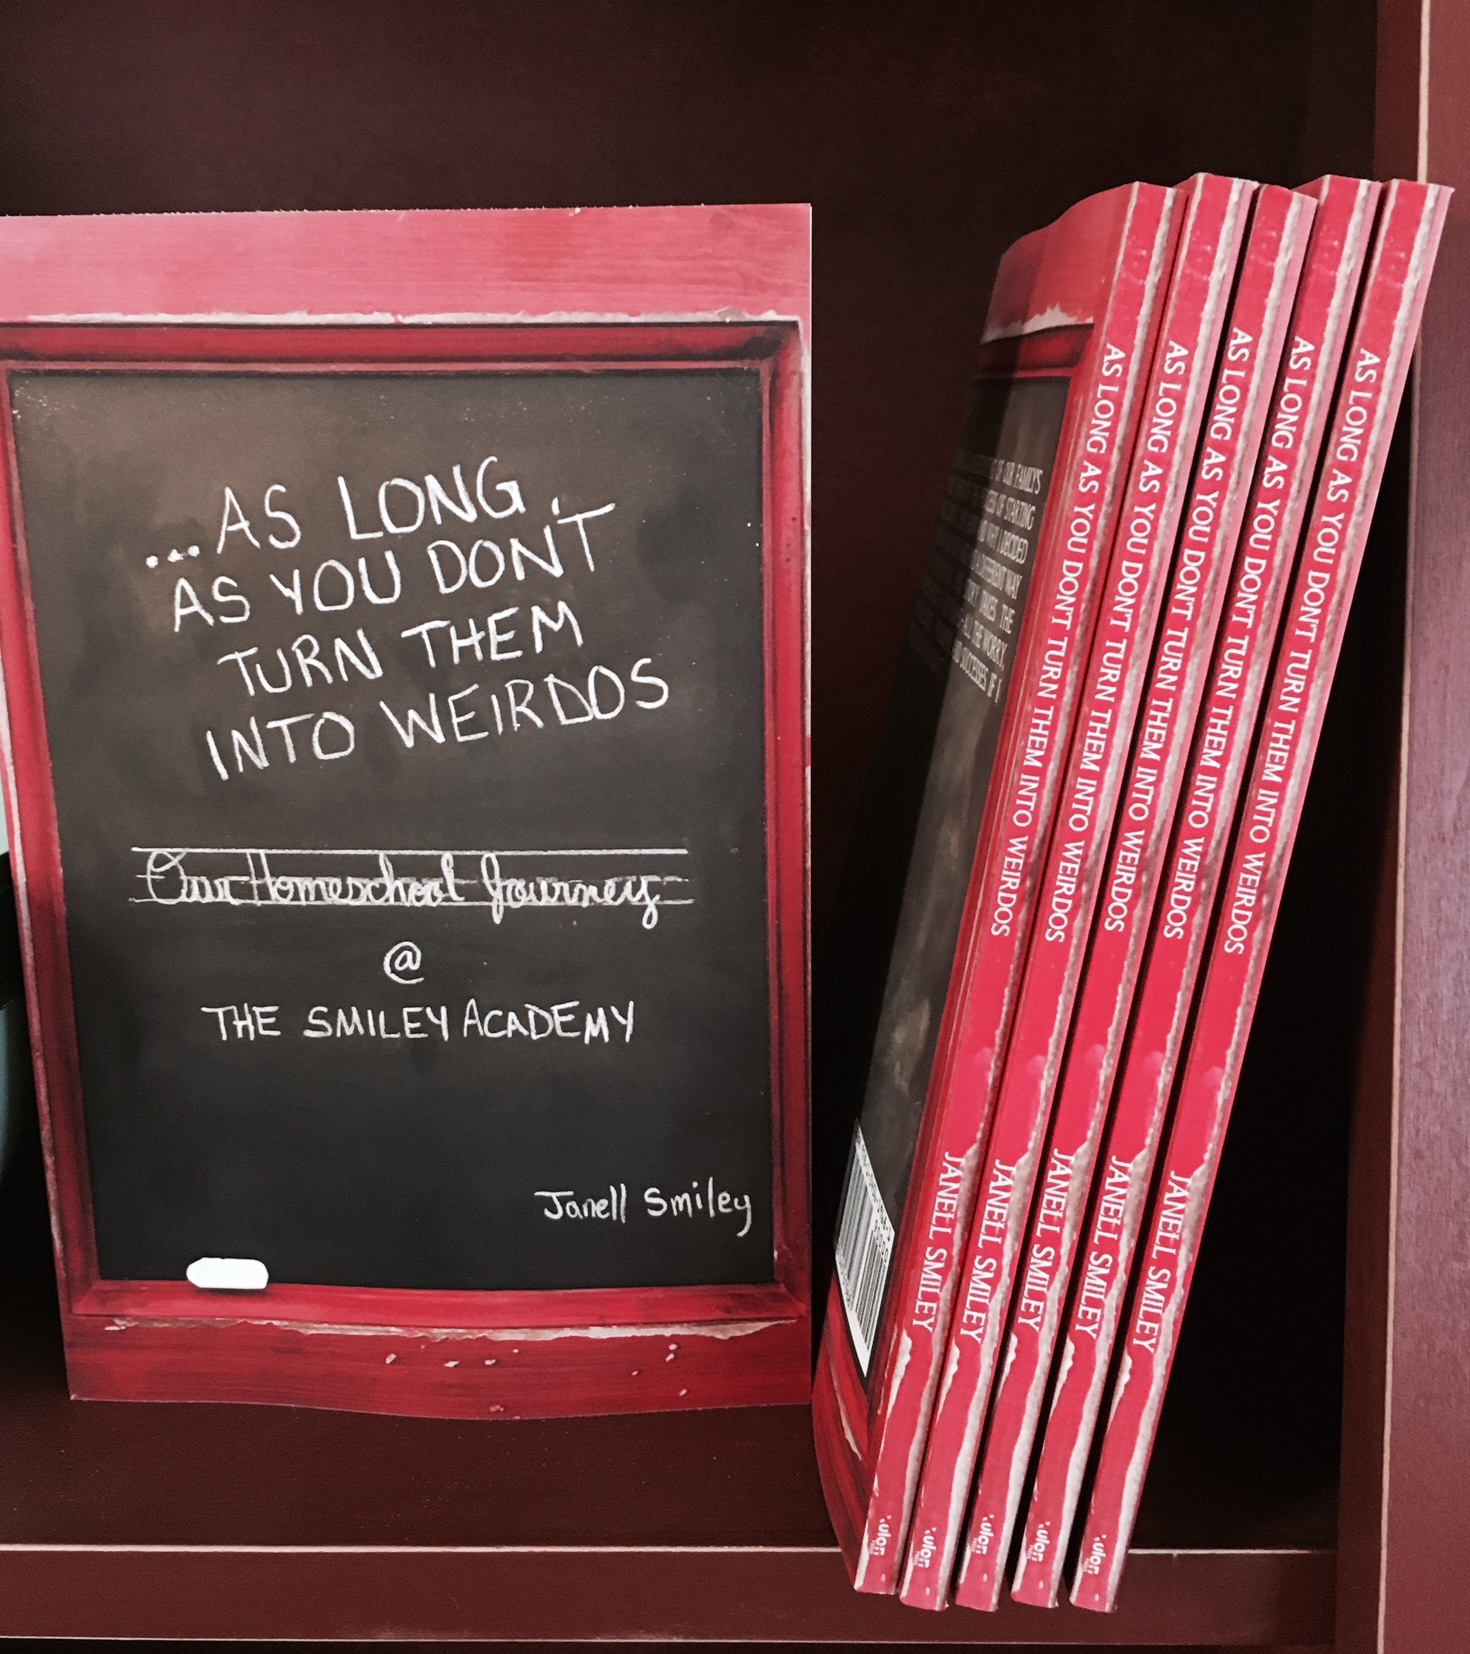 ...AS LONG
AS YOU DON'T
TURN THEM
INTO WEIRDOS
Our Homeschool Journey
@
THE SMILEY ACADEMY
Janell Smiley
OF OUR FAMILY'S
OF STARTING
I DECIDED
A DIFFERENT WAY
THE
ALL THE WORRY,
SUCCESSES IF I
AS LONG AS YOU DON'T TURN THEM INTO WEIRDOS JANELL SMILEY
AS LONG AS YOU DON'T TURN THEM INTO WEIRDOS JANELL SMILEY
AS LONG AS YOU DON'T TURN THEM INTO WEIRDOS JANELL SMILEY
AS LONG AS YOU DON'T TURN THEM INTO WEIRDOS JANELL SMILEY
AS LONG AS YOU DON'T TURN THEM INTO WEIRDOS JANELL SMILEY